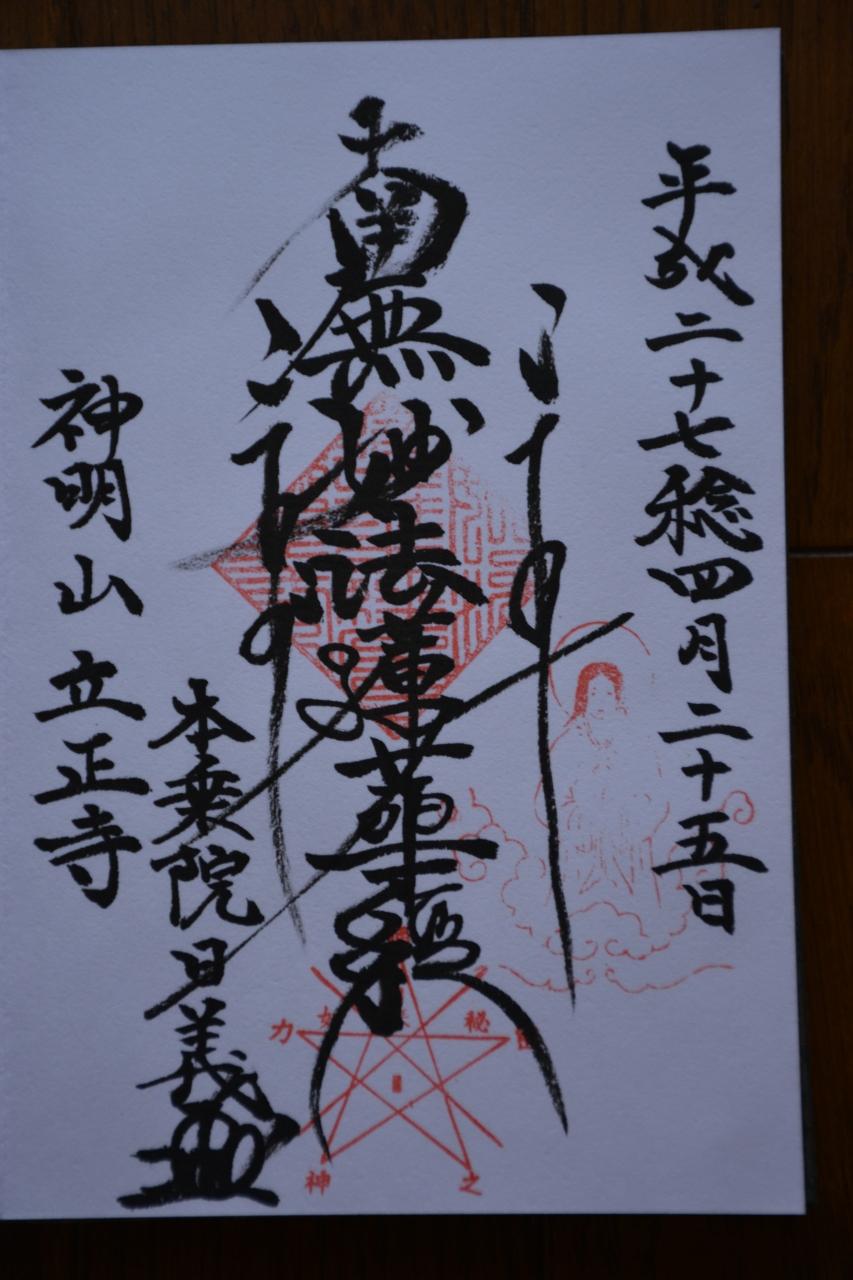 平成二十七稔四月二十五日
南無妙法蓮華経
本乗院日義
神明山 立正寺
力 如 秘
神 之